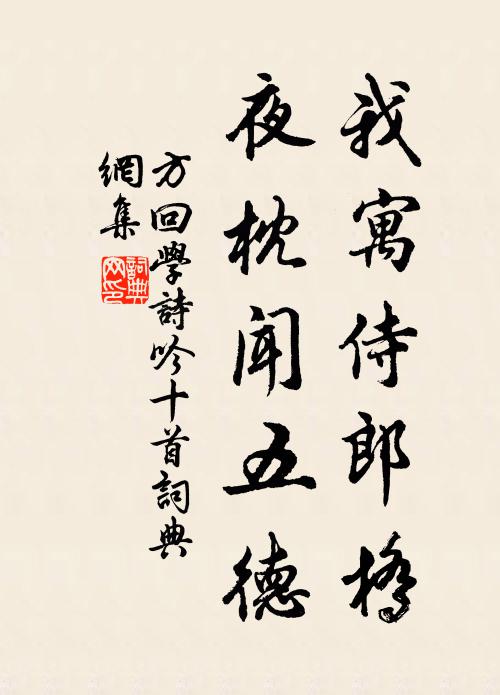 我寓侍郎橋
夜枕聞五德
方回學詩吟十首詞典
網集
詞典網印